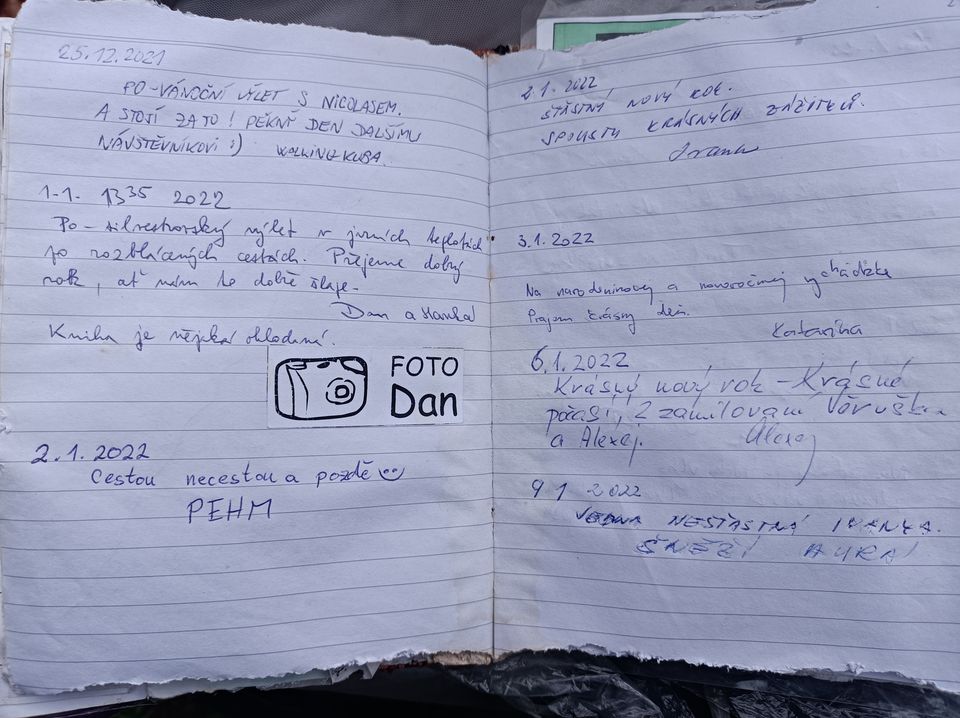 25.12.2021
PO-VÁNOČNÍ VÝLET S NICOLASEM.
A STOJÍ ZA TO! PĚKNÝ DEN DALŠÍMU
NÁVŠTĚVNÍKOVI :) WALKINGKUBA.
1.1. 13 35 2022
Po-silvestrovský výlet v jarních teplotách
po rozblácených cestách. Přejeme dobrý
rok, ať nám to dobře šlape.
Dan a Hanka
Kniha je nějaká ohlodaná.
FOTO
Dan
2.1.2022
Cestou necestou a pozdě
PEHM
2.1.2022
ŠŤASTNÝ NOVÝ ROK.
SPOUSTU KRÁSNÝCH ZÁŽITKŮ.
3.1.2022
Na narodeninovej a novoročnej vychádzke
Prajem krásny deň.
Katarína
6.1.2022
Krásný nový rok - Krásné
počasí, 2 zamilovaní Věruška
a Alexej. Alexej
9 1 2022
NEŠŤASTNÁ IVANKA.
SNĚŽÍ